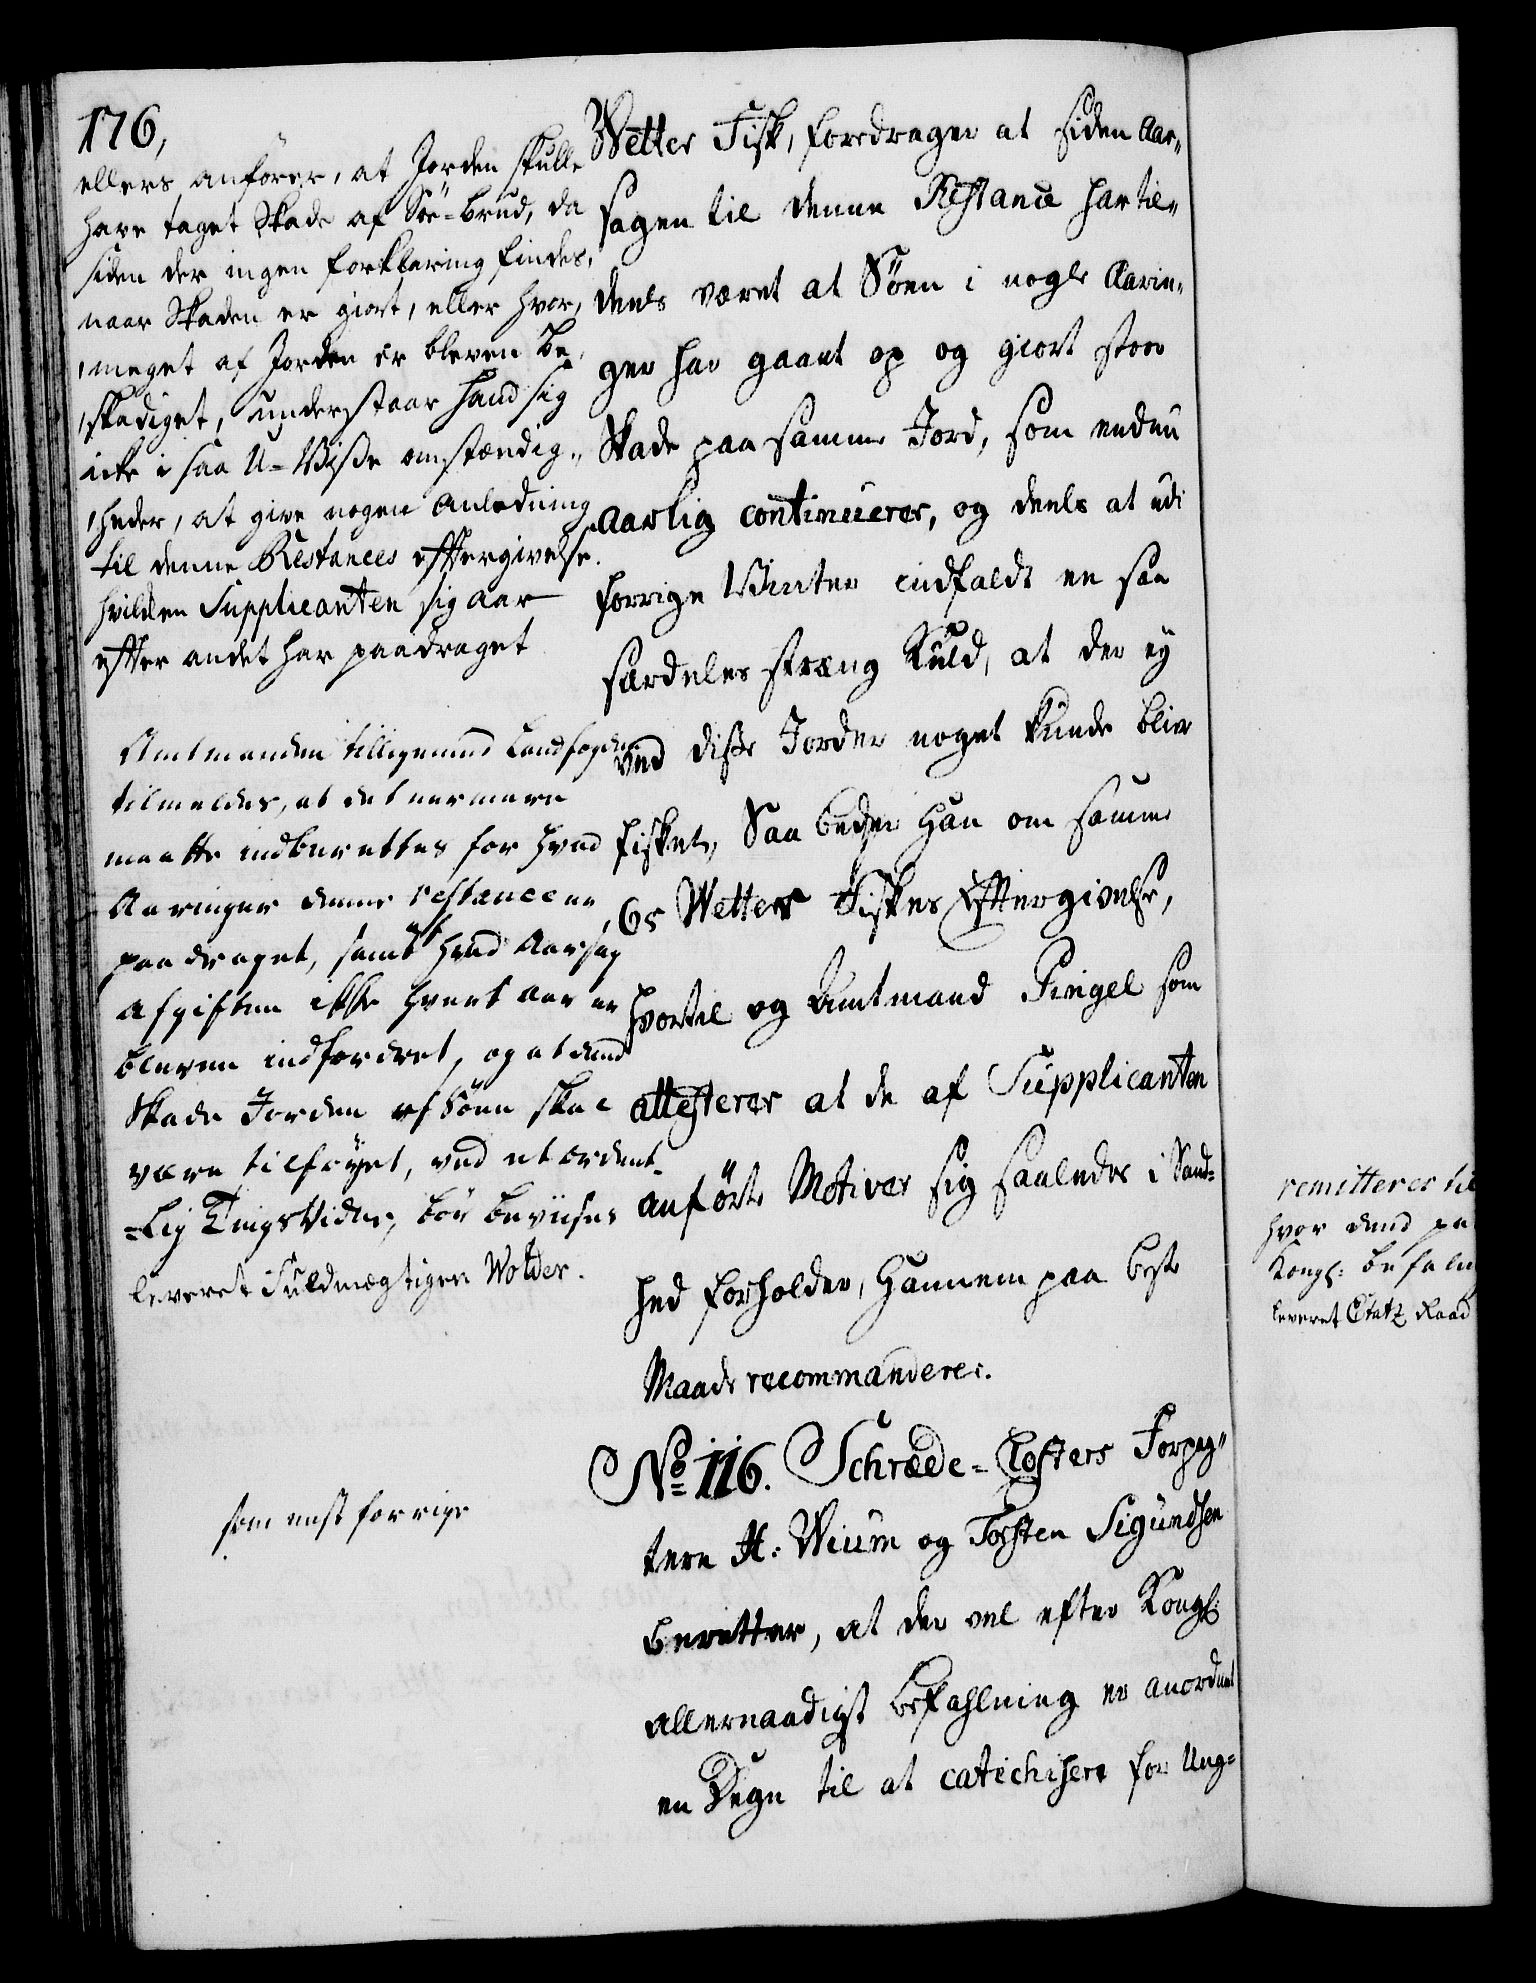 176,
ellers anförer, at Jorden skulle
have taget Skade af Söe-brud, da
siden der ingen forklaring findes,
naar Skaden er giort, eller hvor,
meget af Jorden er bleven be,
skadiget, understaar hand sig
icke i saa U-Visse omstændig,,
heder, at give nogen anledning
til denne Restances eftergivelse.
hvilken Supplicanten sig aar
efter andet har paadraget
Amtmanden tilligemed Landfogden
tilmeldes, at det nermere
maatte indberettes for hvad
Aaringer denne restance er
paadraget, samt af hvad Aarsag
afgiften ikke hvert aar er
bleven indfordret, og at dend
Skade Jorden af Söen skal
være tilföyet, ved et ordent-
-lig TingsVidne, bör beviises
leveret Fuldmægtigen Wolder.
som nest forrige
Wetter Fisk, foredrager at siden Aar,,
sagen til denne Restance har til,,
deels været at Söen i nogle Aarin,,
ger har gaaet op og giort stor
Skade paa samme Jord, som endnu
aarlig continuerer, og deels at udi
forrige Winter indfaldt en saa
særdeles stræng Kuld, at der ey
ved disse Jorder noget kunde blive
fisket, Saa beder Han om samme
65 Wetters Fiskes Eftergivelse,
hvortil og Amtmand Pingel som
attesterer at de af Supplicanten
anförte Motiver sig saaledes i Sand-
hed forholder, Hannem paa beste
Maade recommanderer.
No 116. Schræde-Closters Forpag,,
tere H: Wium og Torsten Sigundsen
beretter, at der vel efter Kongl:
allernaadigst befahlning er anordnet
en Degn til at catechisere for Ung-
remitteres til
hvor dend pa
Kongl: befaln
leveret Etatz Raad